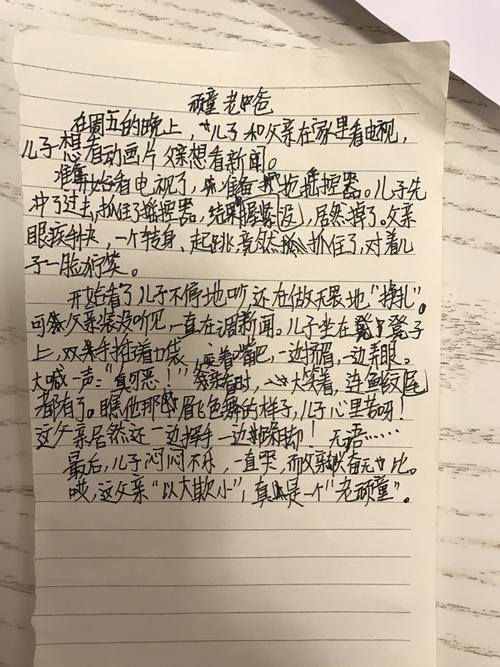 顽童老爸
在周五的晚上，儿子和父亲在家里看电视，
儿子想看动画片父亲想看新闻。
准备开始看电视了，准备抢摇控器。儿子先
冲了过去，抓住了摇控器，结果握紧，居然掉了。父亲
眼疾手快，一个转身、起跳竟然抓住了，对着儿
子一脸奸笑。
开始看了儿子不停地吵，还在做无果地“挣扎”。
可父亲装没听见，一直在调新闻。儿子坐在凳子
上，双手插着口袋，嘟着嘴吧，一边挤眉，一边弄眼。
大喊一声：“真可恶！”父亲有时，大笑着，连鱼纹尾
都有了。瞧他那眉飞色舞的样子，儿子心里苦呀！
这父亲居然还一边挥手一边跺脚！无语……
最后，儿子闷闷不乐，一直哭，而父亲兴奋无比。
哎，这父亲“以大欺小”，真是一个“老顽童”。